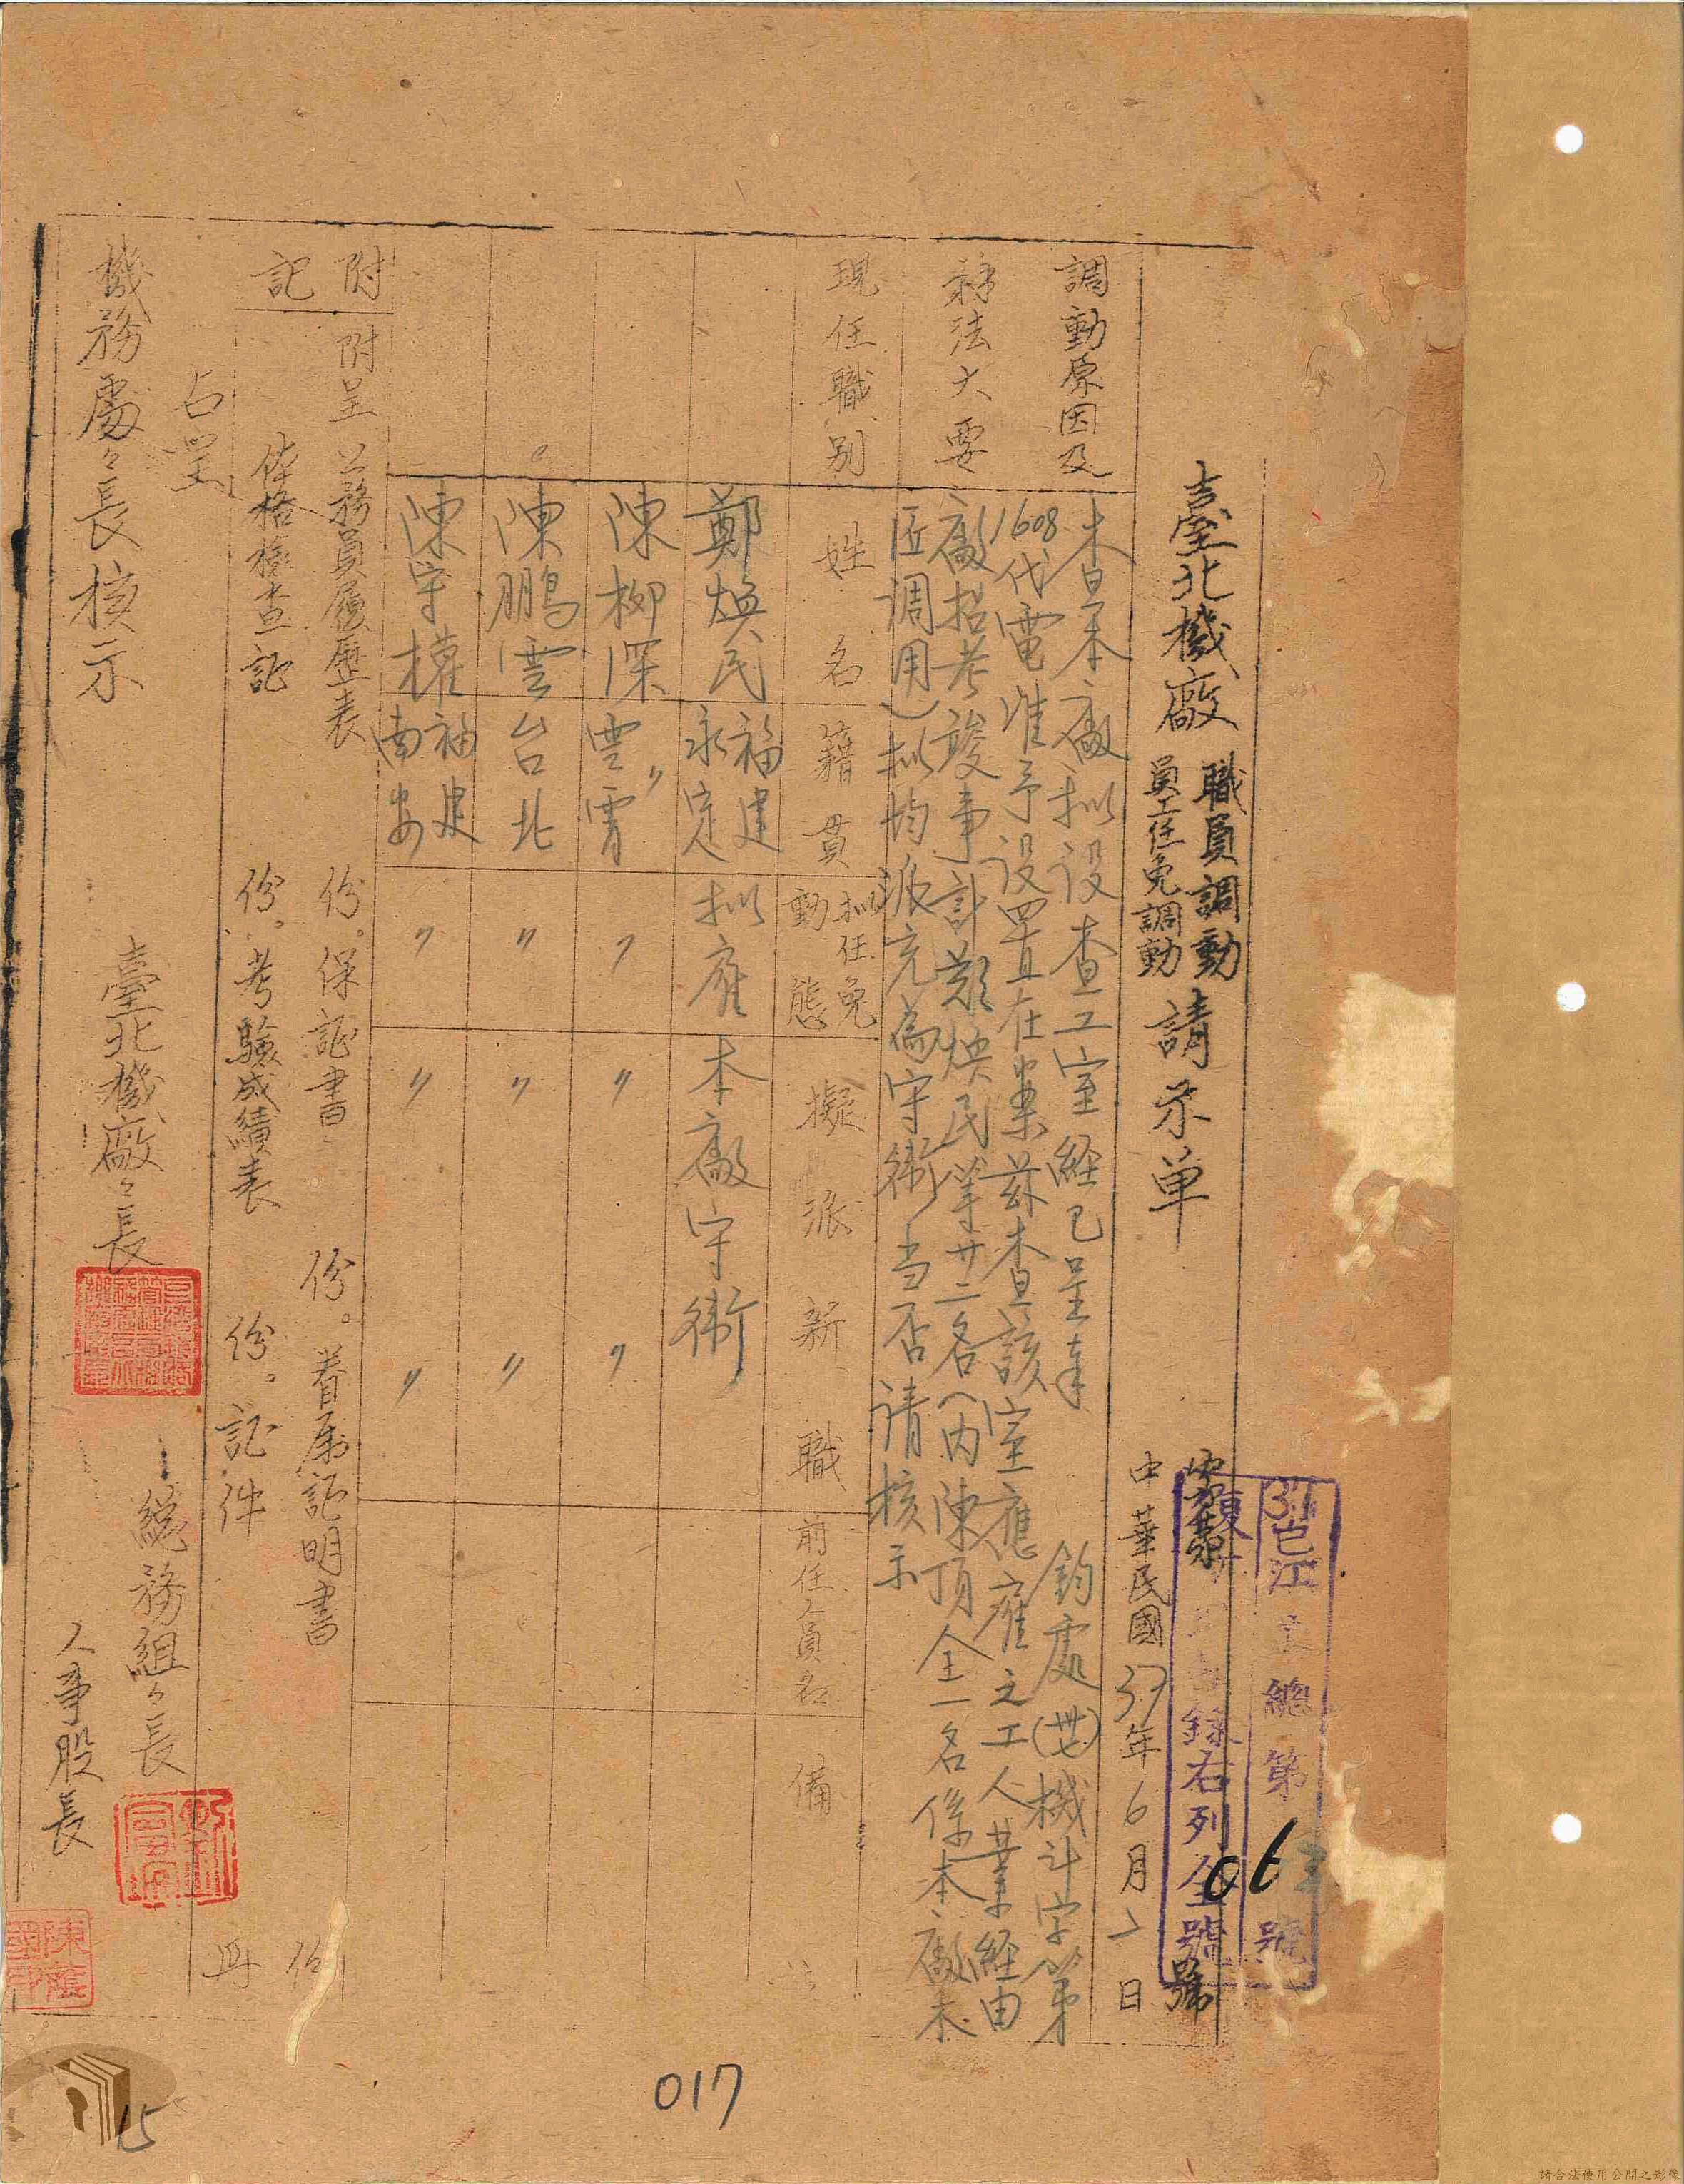 臺北機廠 職員調動 員工任免調動 請示单
字第 號
中華民國37年6月 日
37巳江 總第06 號
錄右列全號
調動原因及
辦法大要
查本廠拟設查工室経已呈奉
鈞處(卅七)機計字第
1608代電准予設置在案茲查該室應雇之工人業経由
廠招考竣事計鄭煥民等廿二名(内陳頂全一名係本廠木
匠調用)拟均派充為守衛当否请核示
現任職別
姓名
籍貫
拟任免動態
擬派新職
前任人員名
備
鄭煥民 福建永定 拟雇 本廠守衛
陳柳深 〃雲霄 〃 〃 〃
陳鵬雲 台北 〃 〃 〃
陳守權 福建南安 〃 〃 〃
附記
附呈 公務員履歷表 份。保証書 份。眷屬証明書 份
体格檢查証 份。考驗成績表 份。証件
右呈
機務處々長核示
臺北機廠々長
總務組々長
人事股長
017
15
請合法使用公開之影像